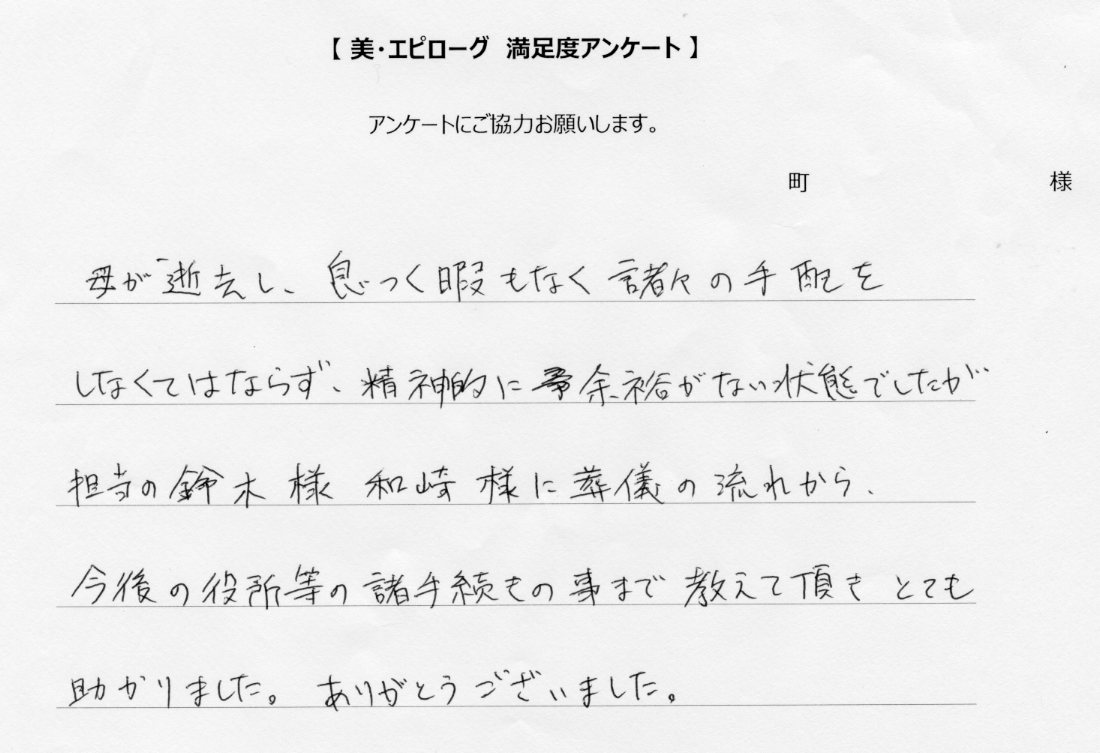 【 美・エピローグ 満足度アンケート 】
アンケートにご協力お願いします。
町 様
母が逝去し、息つく暇もなく諸々の手配を
しなくてはならず、精神的に余裕がない状態でしたが
担当の鈴木様 和崎様に葬儀の流れから、
今後の役所等の諸手続きの事まで教えて頂き とても
助かりました。ありがとうございました。